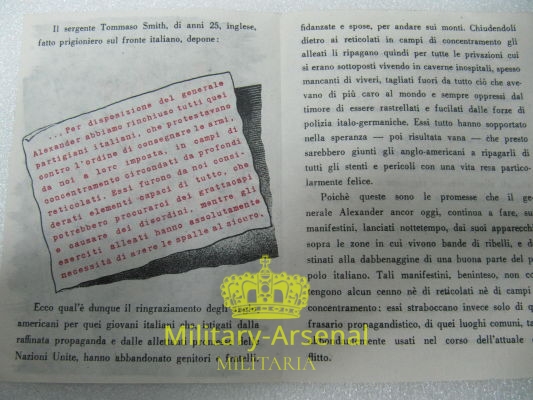 Il sergente Tommaso Smith, di anni 25, inglese,
fatto prigioniero sul fronte italiano, depone:
...Per disposizione del generale
Alexander abbiamo rinchiuso tutti quei
partigiani italiani, che protestavano
contro l'ordine di consegnare le armi,
da noi a loro imposta, in campi di
concentramento circondati da profondi
reticolati. Essi furono da noi consi-
derati elementi capaci di tutto, che
potrebbero procurarci dei grattacapi
e causare dei disordini, mentre gli
eserciti alleati hanno assolutamente
necessità di avere le spalle al sicuro.
Ecco qual'è dunque il ringraziamento degli
americani per quei giovani italiani che, istigati dalla
raffinata propaganda e dalle
Nazioni Unite, hanno abbandonato genitori e fratelli,
fidanzate e spose, per andare sui monti. Chiudendoli
dietro ai reticolati in campi di concentramento gli
alleati li ripagano quindi per tutte le privazioni cui
si erano sottoposti vivendo in caverne inospitali, spesso
mancanti di viveri, tagliati fuori da tutto ciò che ave-
vano di più caro al mondo e sempre oppressi dal
timore di essere rastrellati e fucilati dalle forze di
polizia italo-germaniche. Essi tutto hanno sopportato
nella speranza — poi risultata vana — che presto
sarebbero giunti gli anglo-americani a ripagarli di
tutti gli stenti e pericoli con una vita resa partico-
larmente felice.
Poichè queste sono le promesse che il ge-
nerale Alexander ancor oggi, continua a fare, su
manifestini, lanciati nottetempo, dai suoi apparecchi
sopra le zone in cui vivono bande di ribelli, e d
stinati alla dabbenaggine di una buona parte del p
polo italiano. Tali manifestini, beninteso, non co
tengono alcun cenno nè di reticolati nè di campi
concentramento: essi straboccano invece solo di q
frasario propagandistico, di quei luoghi comuni, ta
abbondantemente usati nel corso dell'attuale
flitto.
Military-Arsenal
MILITARIA